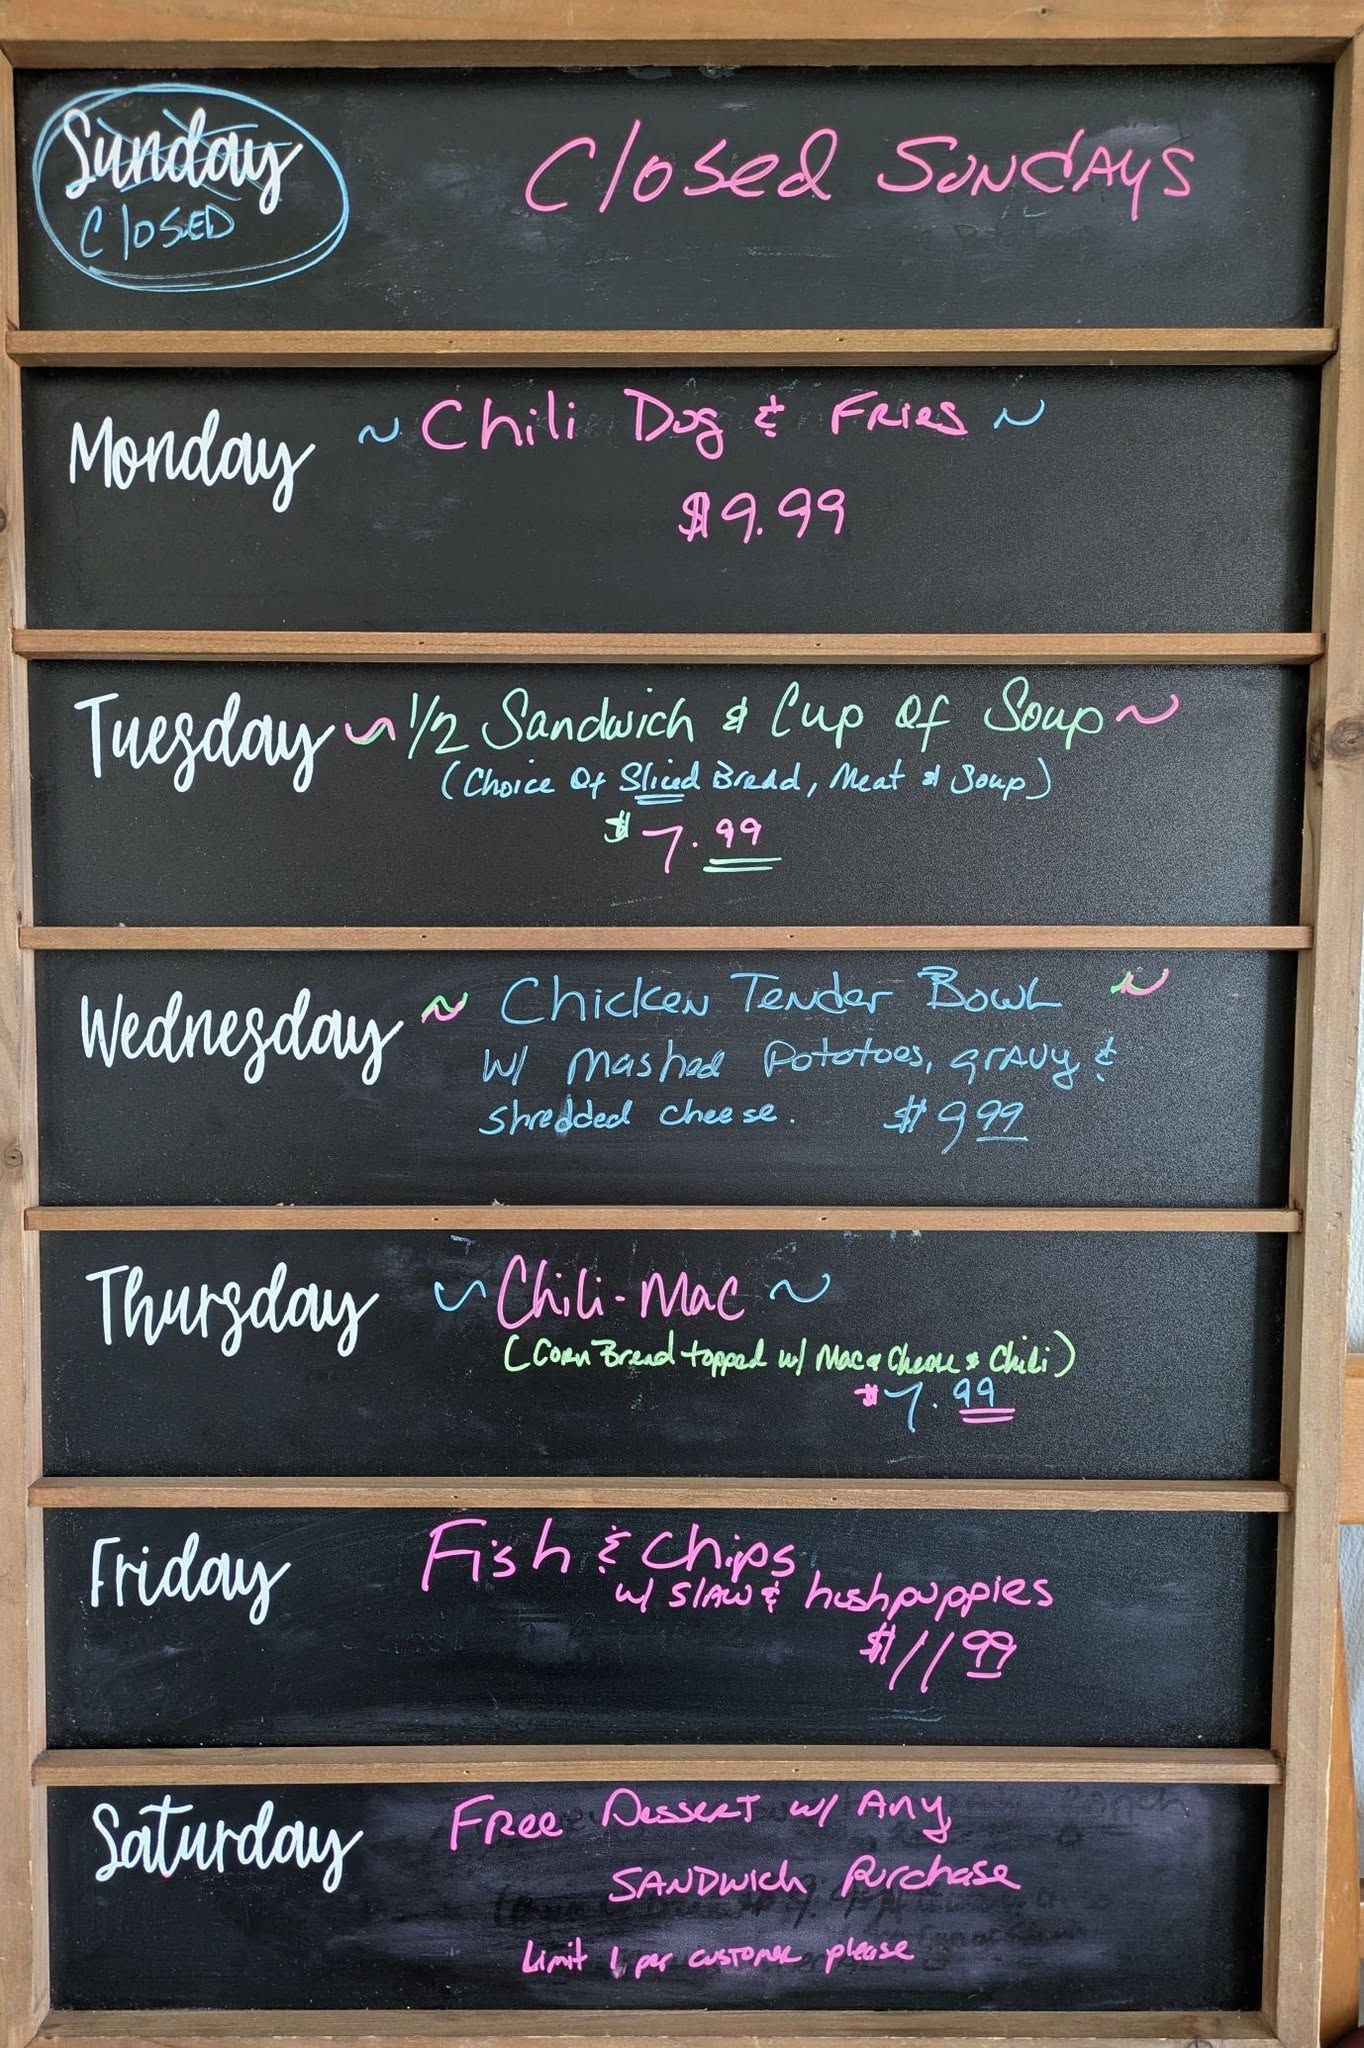 Sunday
Closed
Closed Sundays
Monday
~ Chili Dog & Fries ~
$9.99
Tuesday
~ 1/2 Sandwich & Cup Of Soup ~
(Choice Of Sliced Bread, Meat & Soup)
$7.99
Wednesday
~ Chicken Tender Bowl ~
w/ Mashed Pototoes, gravy &
shredded cheese. $9.99
Thursday
~ Chili-Mac ~
(Corn Bread topped w/ Mac & Cheese & Chili)
$7.99
Friday
Fish & Chips
w/ Slaw & hushpuppies
$11.99
Saturday
Free Dessert w/ Any
Sandwich Purchase
Limit 1 per customer please